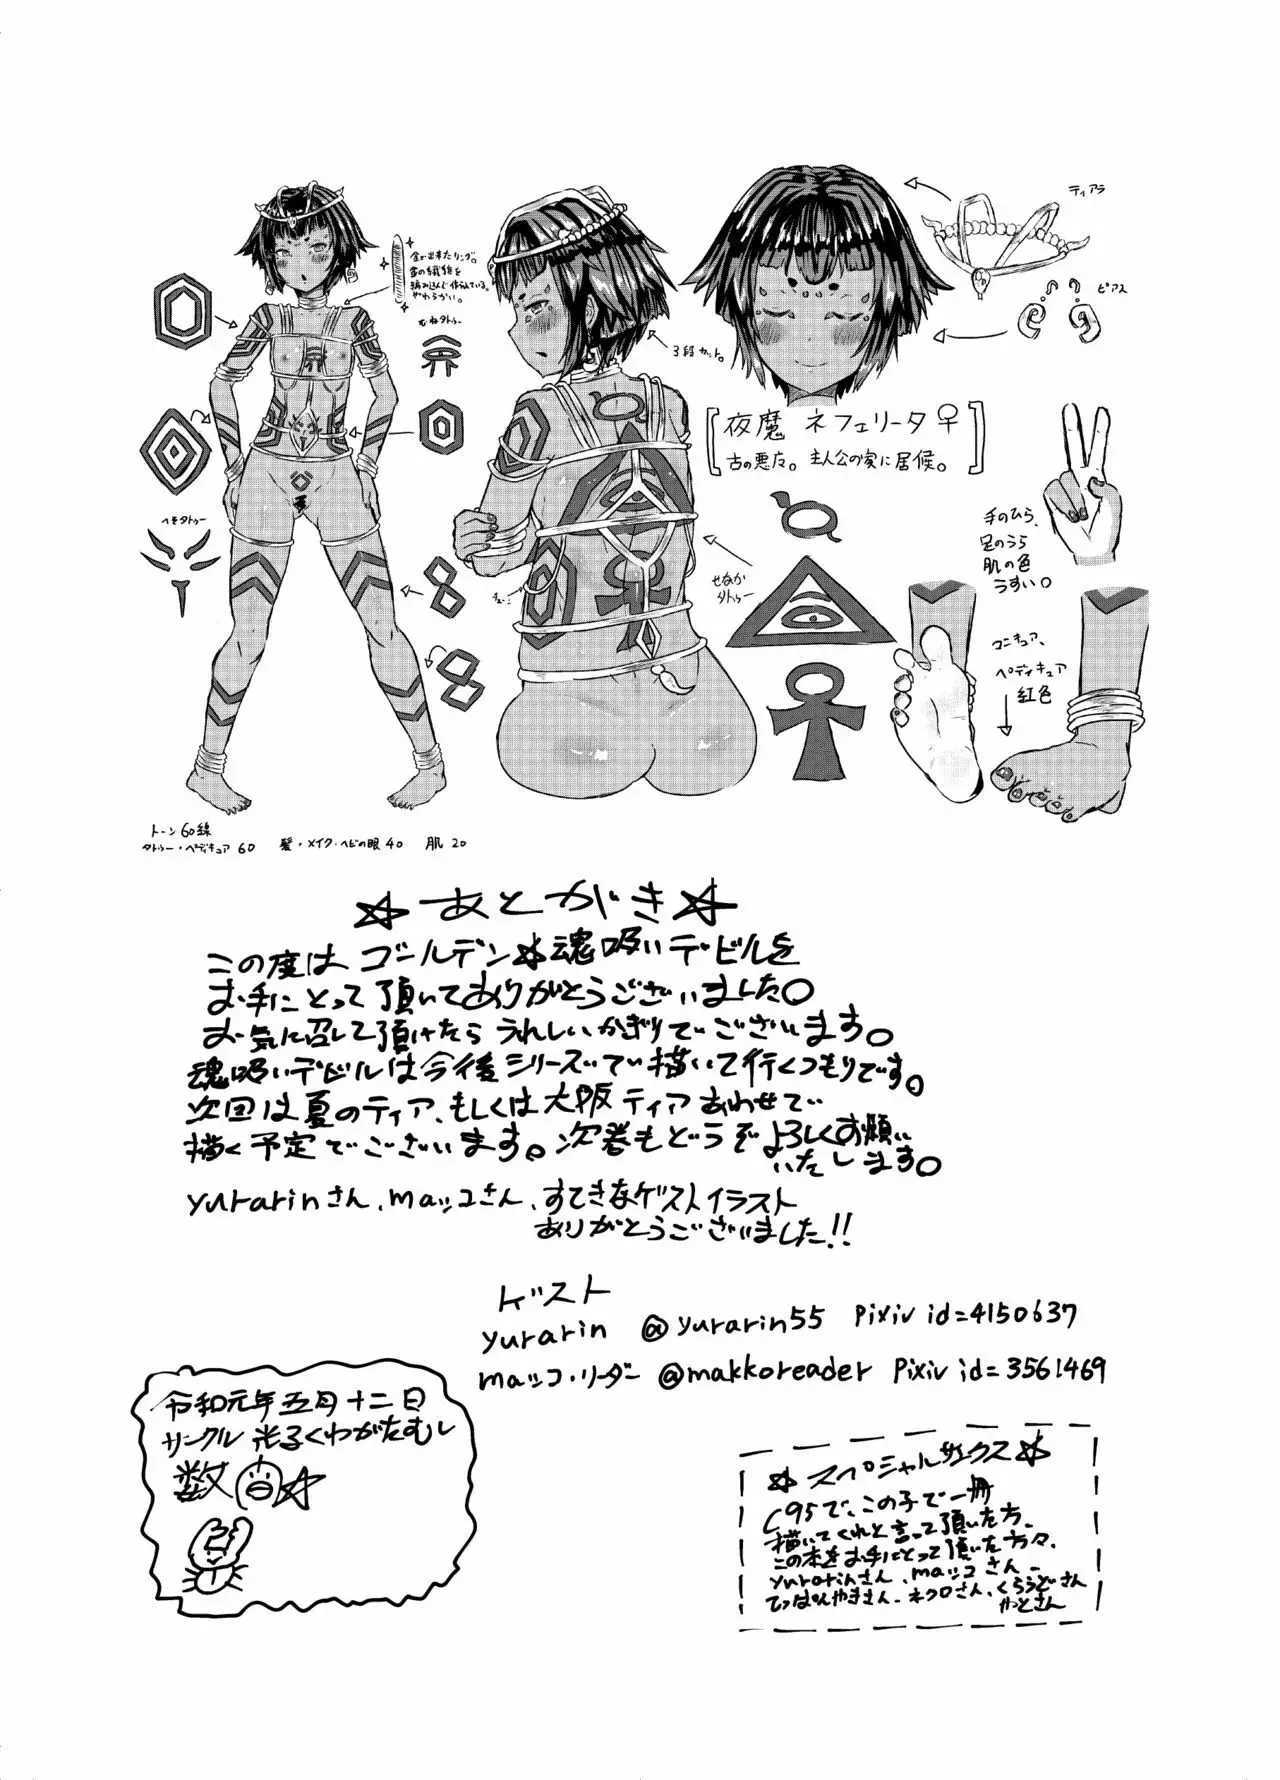 ティアラ
ピアス
金で出来たリング。
むねタトゥー
3段カット。
夜魔 ネフェリータ♀
古の悪魔。主人公の家に居候。
へそタトゥー
せなか
タトゥー
手のひら、
足のうら
肌の色
うすい。
マニキュア、
ペディキュア
紅色
トーン60線
タトゥー・ペディキュア 60 髪・メイク・ヘビの眼 40 肌 20
☆あとがき☆
この度はゴールデン☆魂吸いデビルを
お手にとって頂いてありがとうございました。
お気に召して頂けたらうれしいかぎりでございます。
魂吸いデビルは今後シリーズで描いて行くつもりです。
次回は夏のティア、もしくは大阪ティアあわせで
描く予定でございます。次巻もどうぞよろしくお願い
いたします。
yurarinさん、mマッコさん、すてきなゲストイラスト
ありがとうございました!!
ゲスト
yurarin @yurarin55 Pixiv id=4150637
mマッコ・リーダー @makkoreader Pixiv id=3561469
令和元年五月十二日
サークル 光子くわがたむし
数
☆スペシャルサンクス☆
C95で、この子で一冊
描いてくれと言って頂いた方、
この本をお手にとって頂いた方々、
yurarinさん、mマッコさん、
てっぱんやきさん、ネクロさん、くろうどさん
やとさん